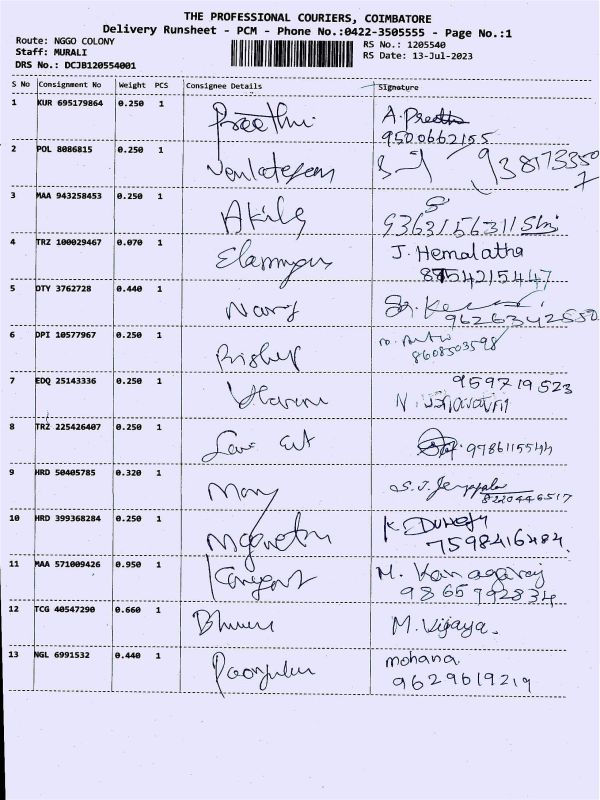 THE PROFESSIONAL COURIERS, COIMBATORE
Delivery Runsheet - PCM - Phone No.:0422-3505555 - Page No.:1
Route: NGGO COLONY
Staff: MURALI
DRS No.: DCJB120554001
RS No.: 1205540
RS Date: 13-Jul-2023
S No Consignment No Weight PCS Consignee Details Signature
1 KUR 695179864 0.250 1 Preethi A. Preetha
9500662155
2 POL 8086815 0.250 1 Venkatesan
3 MAA 943258453 0.250 1 Akila
9363156311
4 TRZ 100029467 0.070 1 J. Hemalatha
5 DTY 3762728 0.440 1
9626342550
6 DPI 10577967 0.250 1
8608503598
7 EDQ 25143336 0.250 1
959719523
8 TRZ 225426407 0.250 1 9786115544
9 HRD 50405785 0.320 1 Mary
8220446517
10 HRD 399368284 0.250 1
7598416484.
11 MAA 571009426 0.950 1 M. Kanagaraj
9865792834
12 TCG 40547290 0.660 1 M. Vijaya.
13 NGL 6991532 0.440 1 mohana
9629619219